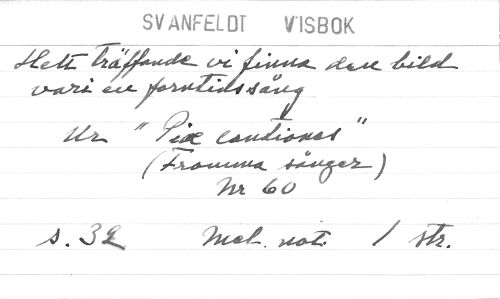 SVANFELDT VISBOK
Hett träffande vi finna den bild
vari en forntidssång
Ur "Piæ cantiones"
(Fromma sånger)
Nr 60
s. 32 Mel. not. 1 str.